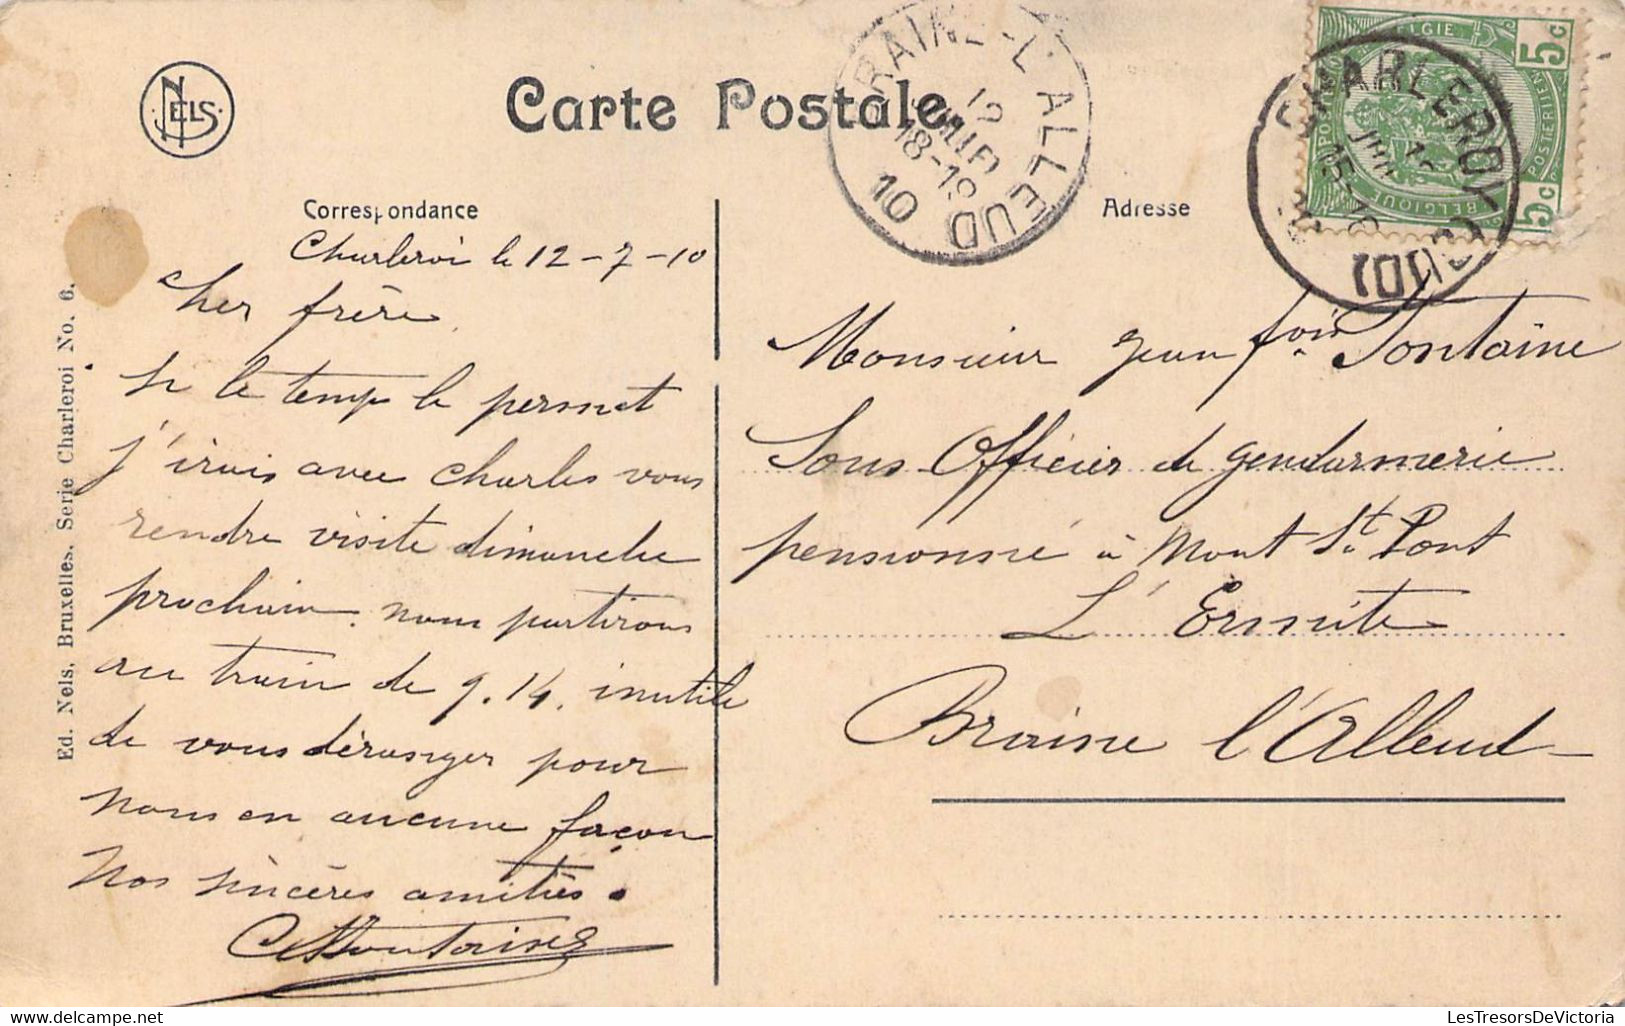 NELS
Carte Postale
Correspondance
Charleroi le 12-7-10
Cher frère
Si le temps le permet
j'irais avec Charles vous
rendre visite dimanche
prochain. nous partirons
au train de 9.14. inutile
de vous déranger pour
nous en aucune façon
Nos sincères amitiés.
Ed. Nels, Bruxelles. Serie Charleroi No. 6.
BRAINE-L'ALLEUD
12
JUIL
18-19
10
Adresse
Monsieur Jean fois Fontaine
Sous Officier de gendarmerie
pensionné à Mont St. Pont
L'Ermite
Braine l'Alleud
CHARLEROI (SUD)
15-16
BELGIE
BELGIQUE
POSTERIJEN
5c
5c
LesTresorsDeVictoria.com